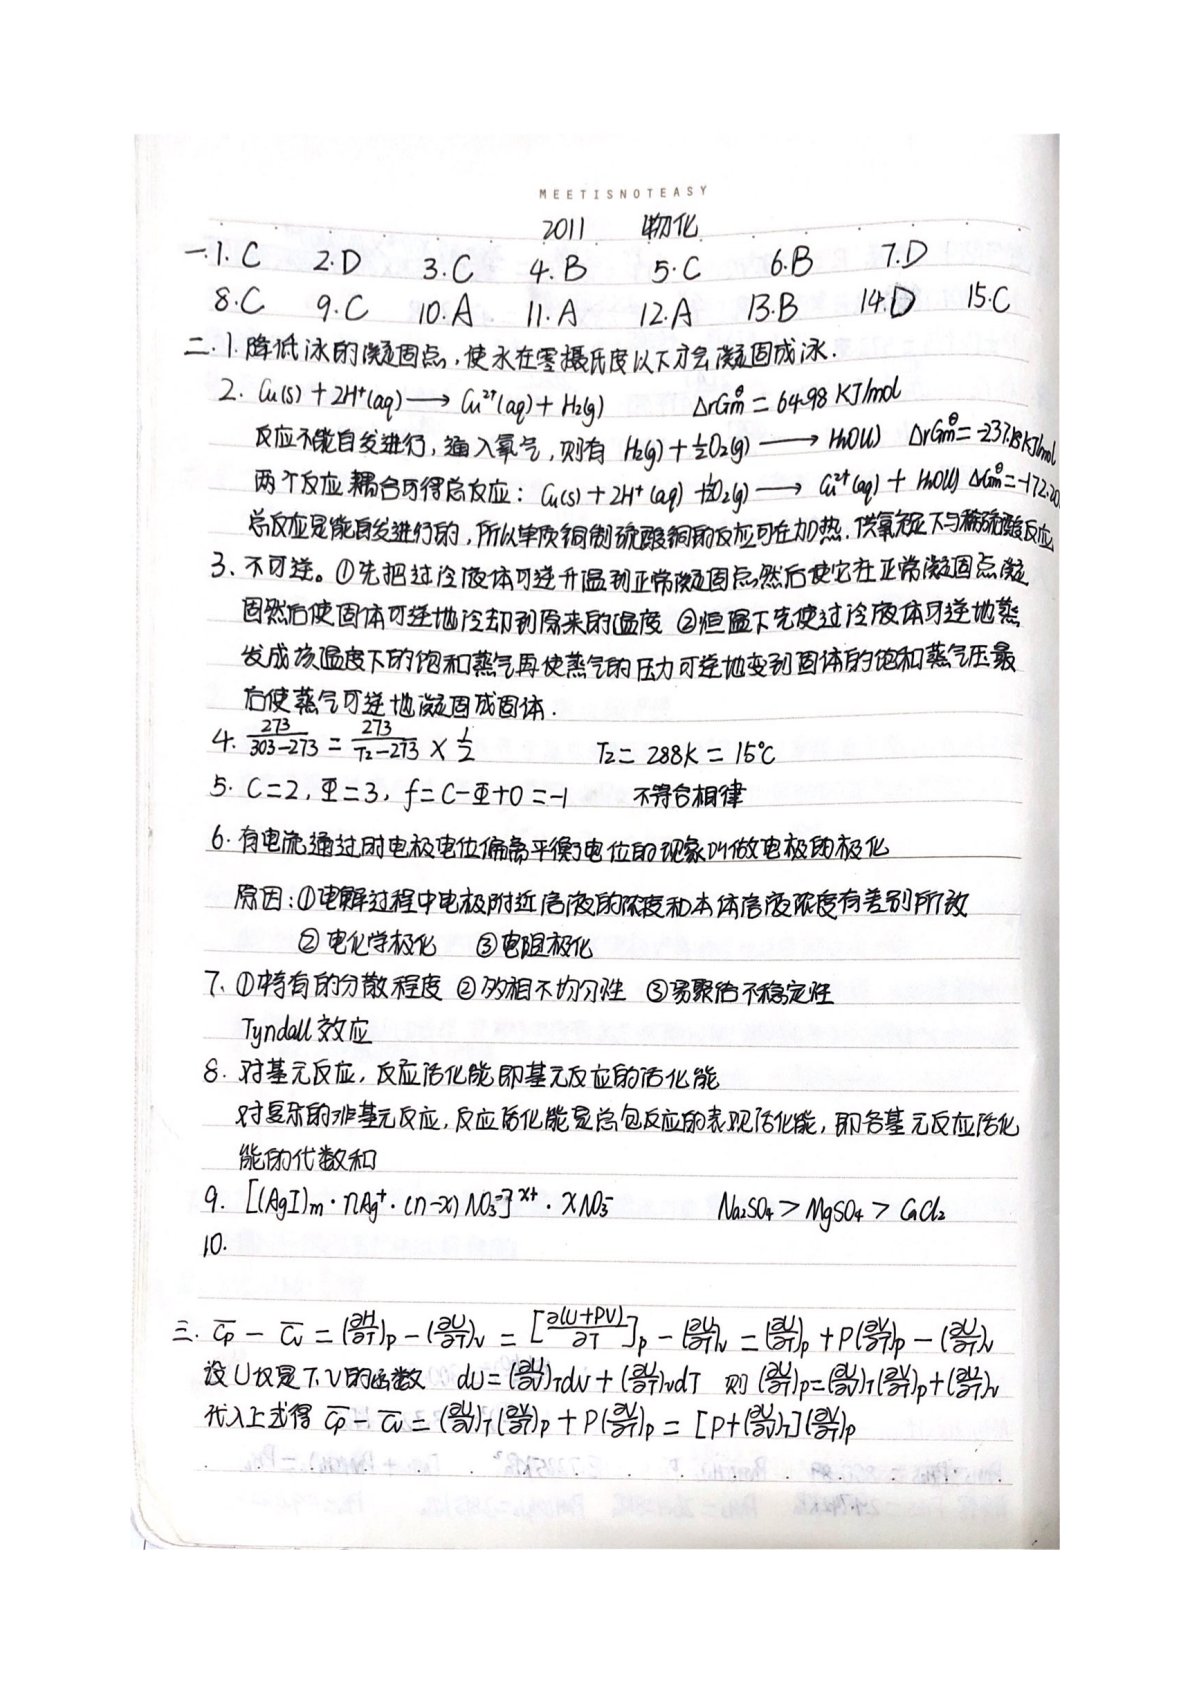 MEETISNOTEASY
2011 物化
一.1.C 2.D 3.C 4.B 5.C 6.B 7.D
8.C 9.C 10.A 11.A 12.A 13.B 14.D 15.C
二.1.降低冰的凝固点,使水在零摄氏度以下才会凝固成冰.
2. Cu(s)+2H⁺(aq)⟶Cu²⁺(aq)+H₂(g) ΔrGmᶿ=64.98 KJ/mol
反应不能自发进行,通入氧气,则有 H₂(g)+½O₂(g)⟶H₂O(l) ΔrGmᶿ=-237.18KJ/mol
两个反应耦合可得总反应: Cu(s)+2H⁺(aq)+½O₂(g)⟶Cu²⁺(aq)+H₂O(l) ΔrGmᶿ=-172.20
总反应是能自发进行的,所以单质铜制硫酸铜的反应可在加热.供氧充足下与稀硫酸反应
3、不可逆。①先把过冷液体可逆升温到正常凝固点然后使它在正常凝固点凝
固然后使固体可逆地冷却到原来的温度 ②恒温下先使过冷液体可逆地蒸
发成该温度下的饱和蒸气再使蒸气的压力可逆地变到固体的饱和蒸气压最
后使蒸气可逆地凝固成固体.
4. 273/(303-273) = 273/(T₂-273) × 1/2 T₂=288K=15℃
5. C=2, Φ=3, f=C-Φ+0=-1 不符合相律
6.有电流通过时电极电位偏离平衡电位的现象叫做电极的极化
原因:①电解过程中电极附近溶液的浓度和本体溶液浓度有差别所致
②电化学极化 ③电阻极化
7.①特有的分散程度 ②多相不均匀性 ③易聚结不稳定性
Tyndall效应
8.对基元反应,反应活化能即基元反应的活化能
对复杂的非基元反应,反应活化能是总包反应的表观活化能,即各基元反应活化
能的代数和
9. [(AgI)m·nAg⁺·(n-x)NO₃⁻]ˣ⁺·xNO₃⁻ Na₂SO₄>MgSO₄>CaCl₂
10.
三. C̄p - C̄v = (∂H/∂T)p - (∂U/∂T)v = [∂(U+PV)/∂T]p - (∂U/∂T)v = (∂U/∂T)p + P(∂V/∂T)p - (∂U/∂T)v
设U仅是T.V的函数 dU=(∂U/∂V)TdV+(∂U/∂T)VdT 则 (∂U/∂T)p=(∂U/∂V)T(∂V/∂T)p+(∂U/∂T)v
代入上式得 C̄p - C̄v = (∂U/∂V)T(∂V/∂T)p + P(∂V/∂T)p = [P+(∂U/∂V)T](∂V/∂T)p